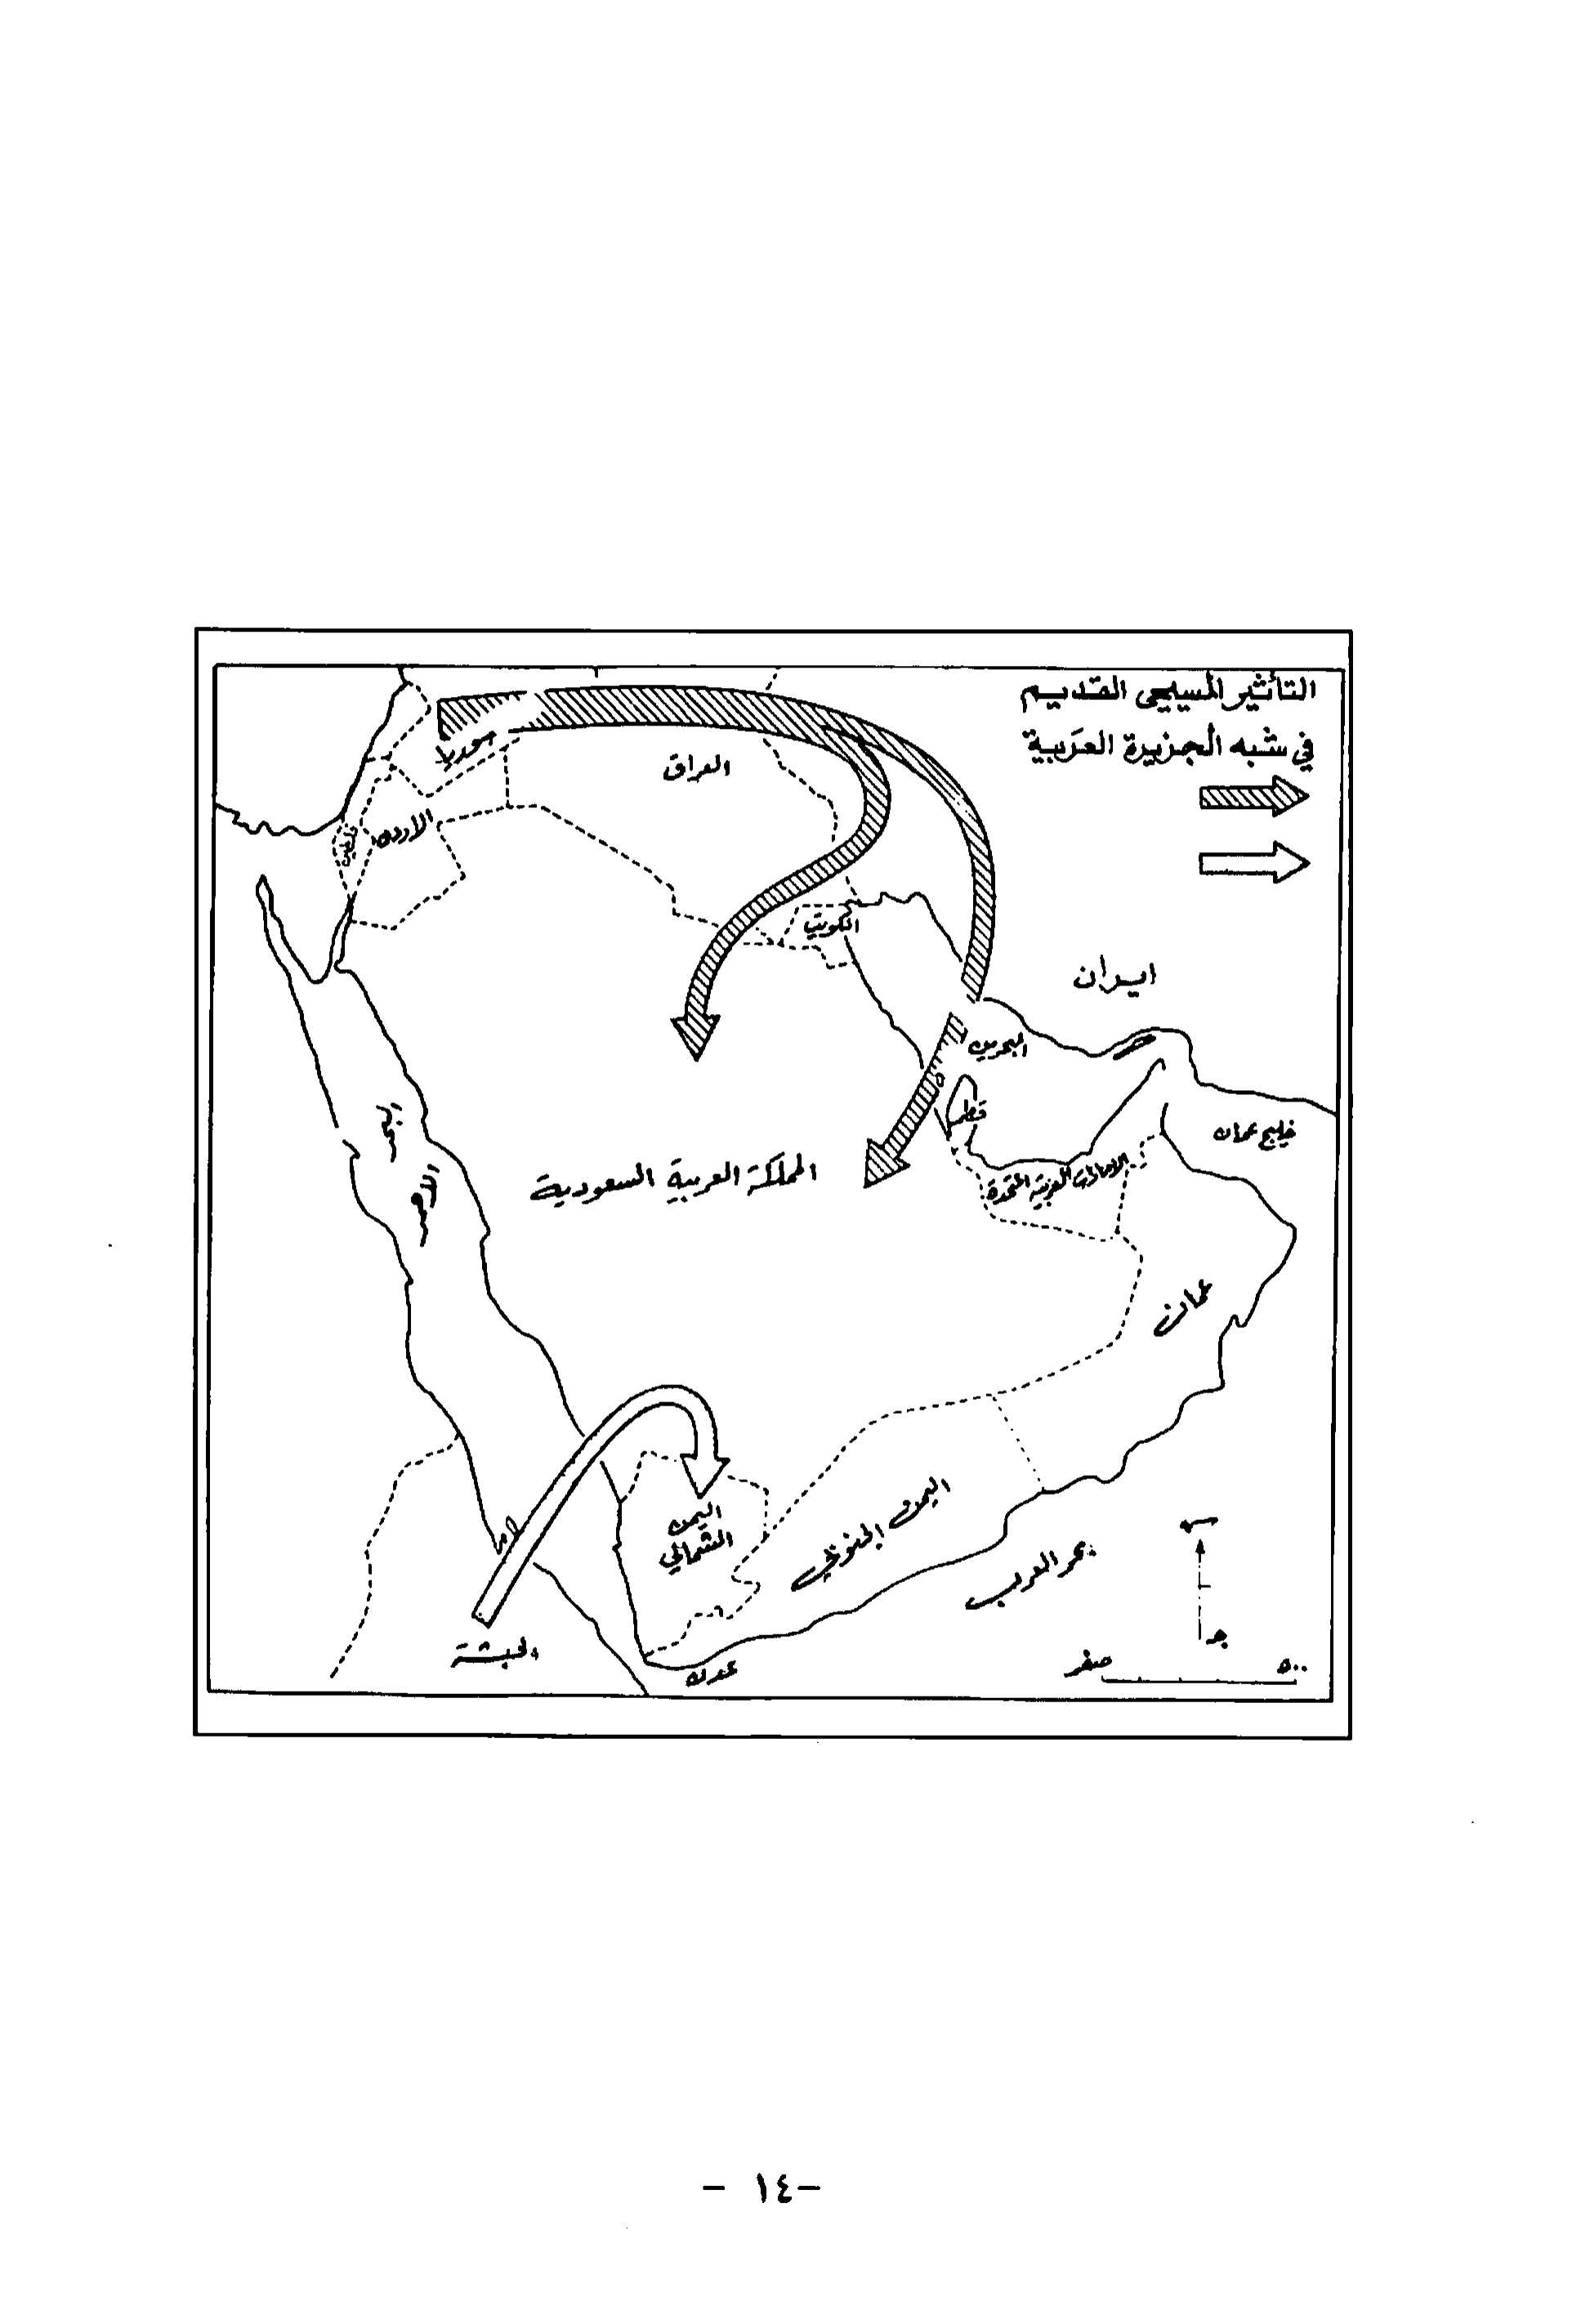 التأثير المسيحى القديم
في شبه الجزيرة العربية
سوريا
العراق
الأردن
فلسطين
الكويت
ايران
البحرين
قطر
خليج عمان
الامارات العربية المتحدة
البحر
الأحمر
المملكة العربية السعودية
عمان
اليمن
الشمالي
اليمن الجنوبي
بحر العرب
الحبشة
عدن
ج
صفر
٥٠٠
- ١٤ -